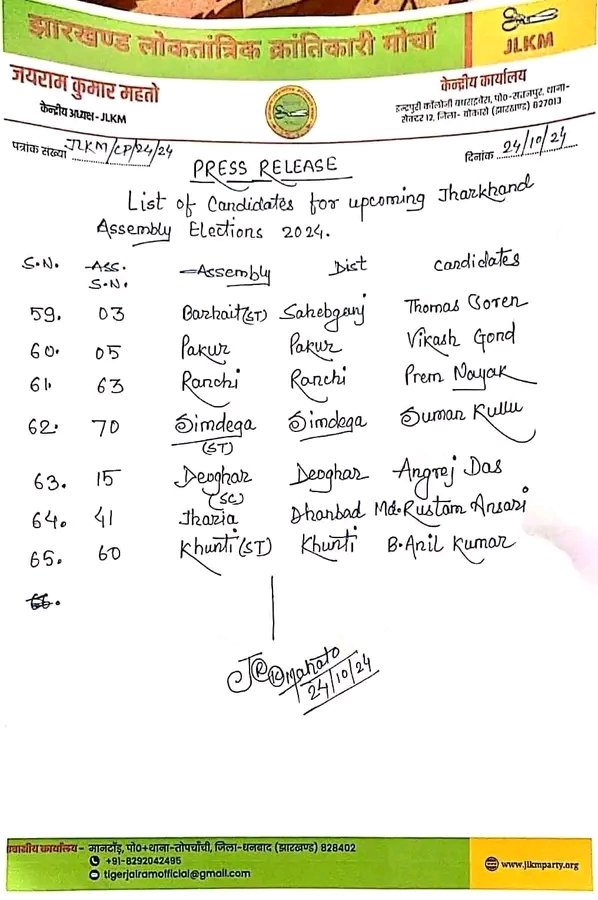 झारखण्ड लोकतांत्रिक क्रांतिकारी मोर्चा
JLKM
जयराम कुमार महतो
केन्द्रीय अध्यक्ष - JLKM
केन्द्रीय कार्यालय
इन्द्रपुरी कॉलोनी पो०- थाना-
सेक्टर 12, जिला- बोकारो (झारखण्ड) 827013
पत्रांक संख्या JLKM/CP/24/24
दिनांक 24/10/24
PRESS RELEASE
List of Candidates for upcoming Jharkhand
Assembly Elections 2024.
S.N. Ass. S.N. Assembly Dist Candidates
59. 03 Barhait (ST) Sahebganj Thomas Soren
60. 05 Pakur Pakur Vikash Gond
61. 63 Ranchi Ranchi Prem Nayak
62. 70 Simdega (ST) Simdega Suman Kullu
63. 15 Deoghar (SC) Deoghar Angrej Das
64. 41 Jharia Dhanbad Md. Rustam Ansari
65. 60 Khunti (ST) Khunti B. Anil Kumar
66.
Mahato
24/10/24
कार्यालय - मानटाँड़, पो०+थाना-तोपचाँची, जिला-धनबाद (झारखण्ड) 828402
+91-8292042495
tigerjairamofficial@gmail.com
www.jlkmparty.org